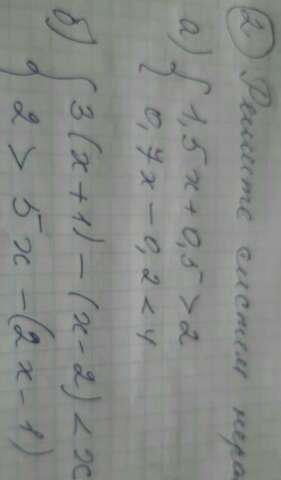 ② Решите систем нера
а) { 1,5x + 0,5 > 2
0,7x - 0,2 < 4
б) { 3(x+1) - (x-2) < x
2 > 5x - (2x-1)